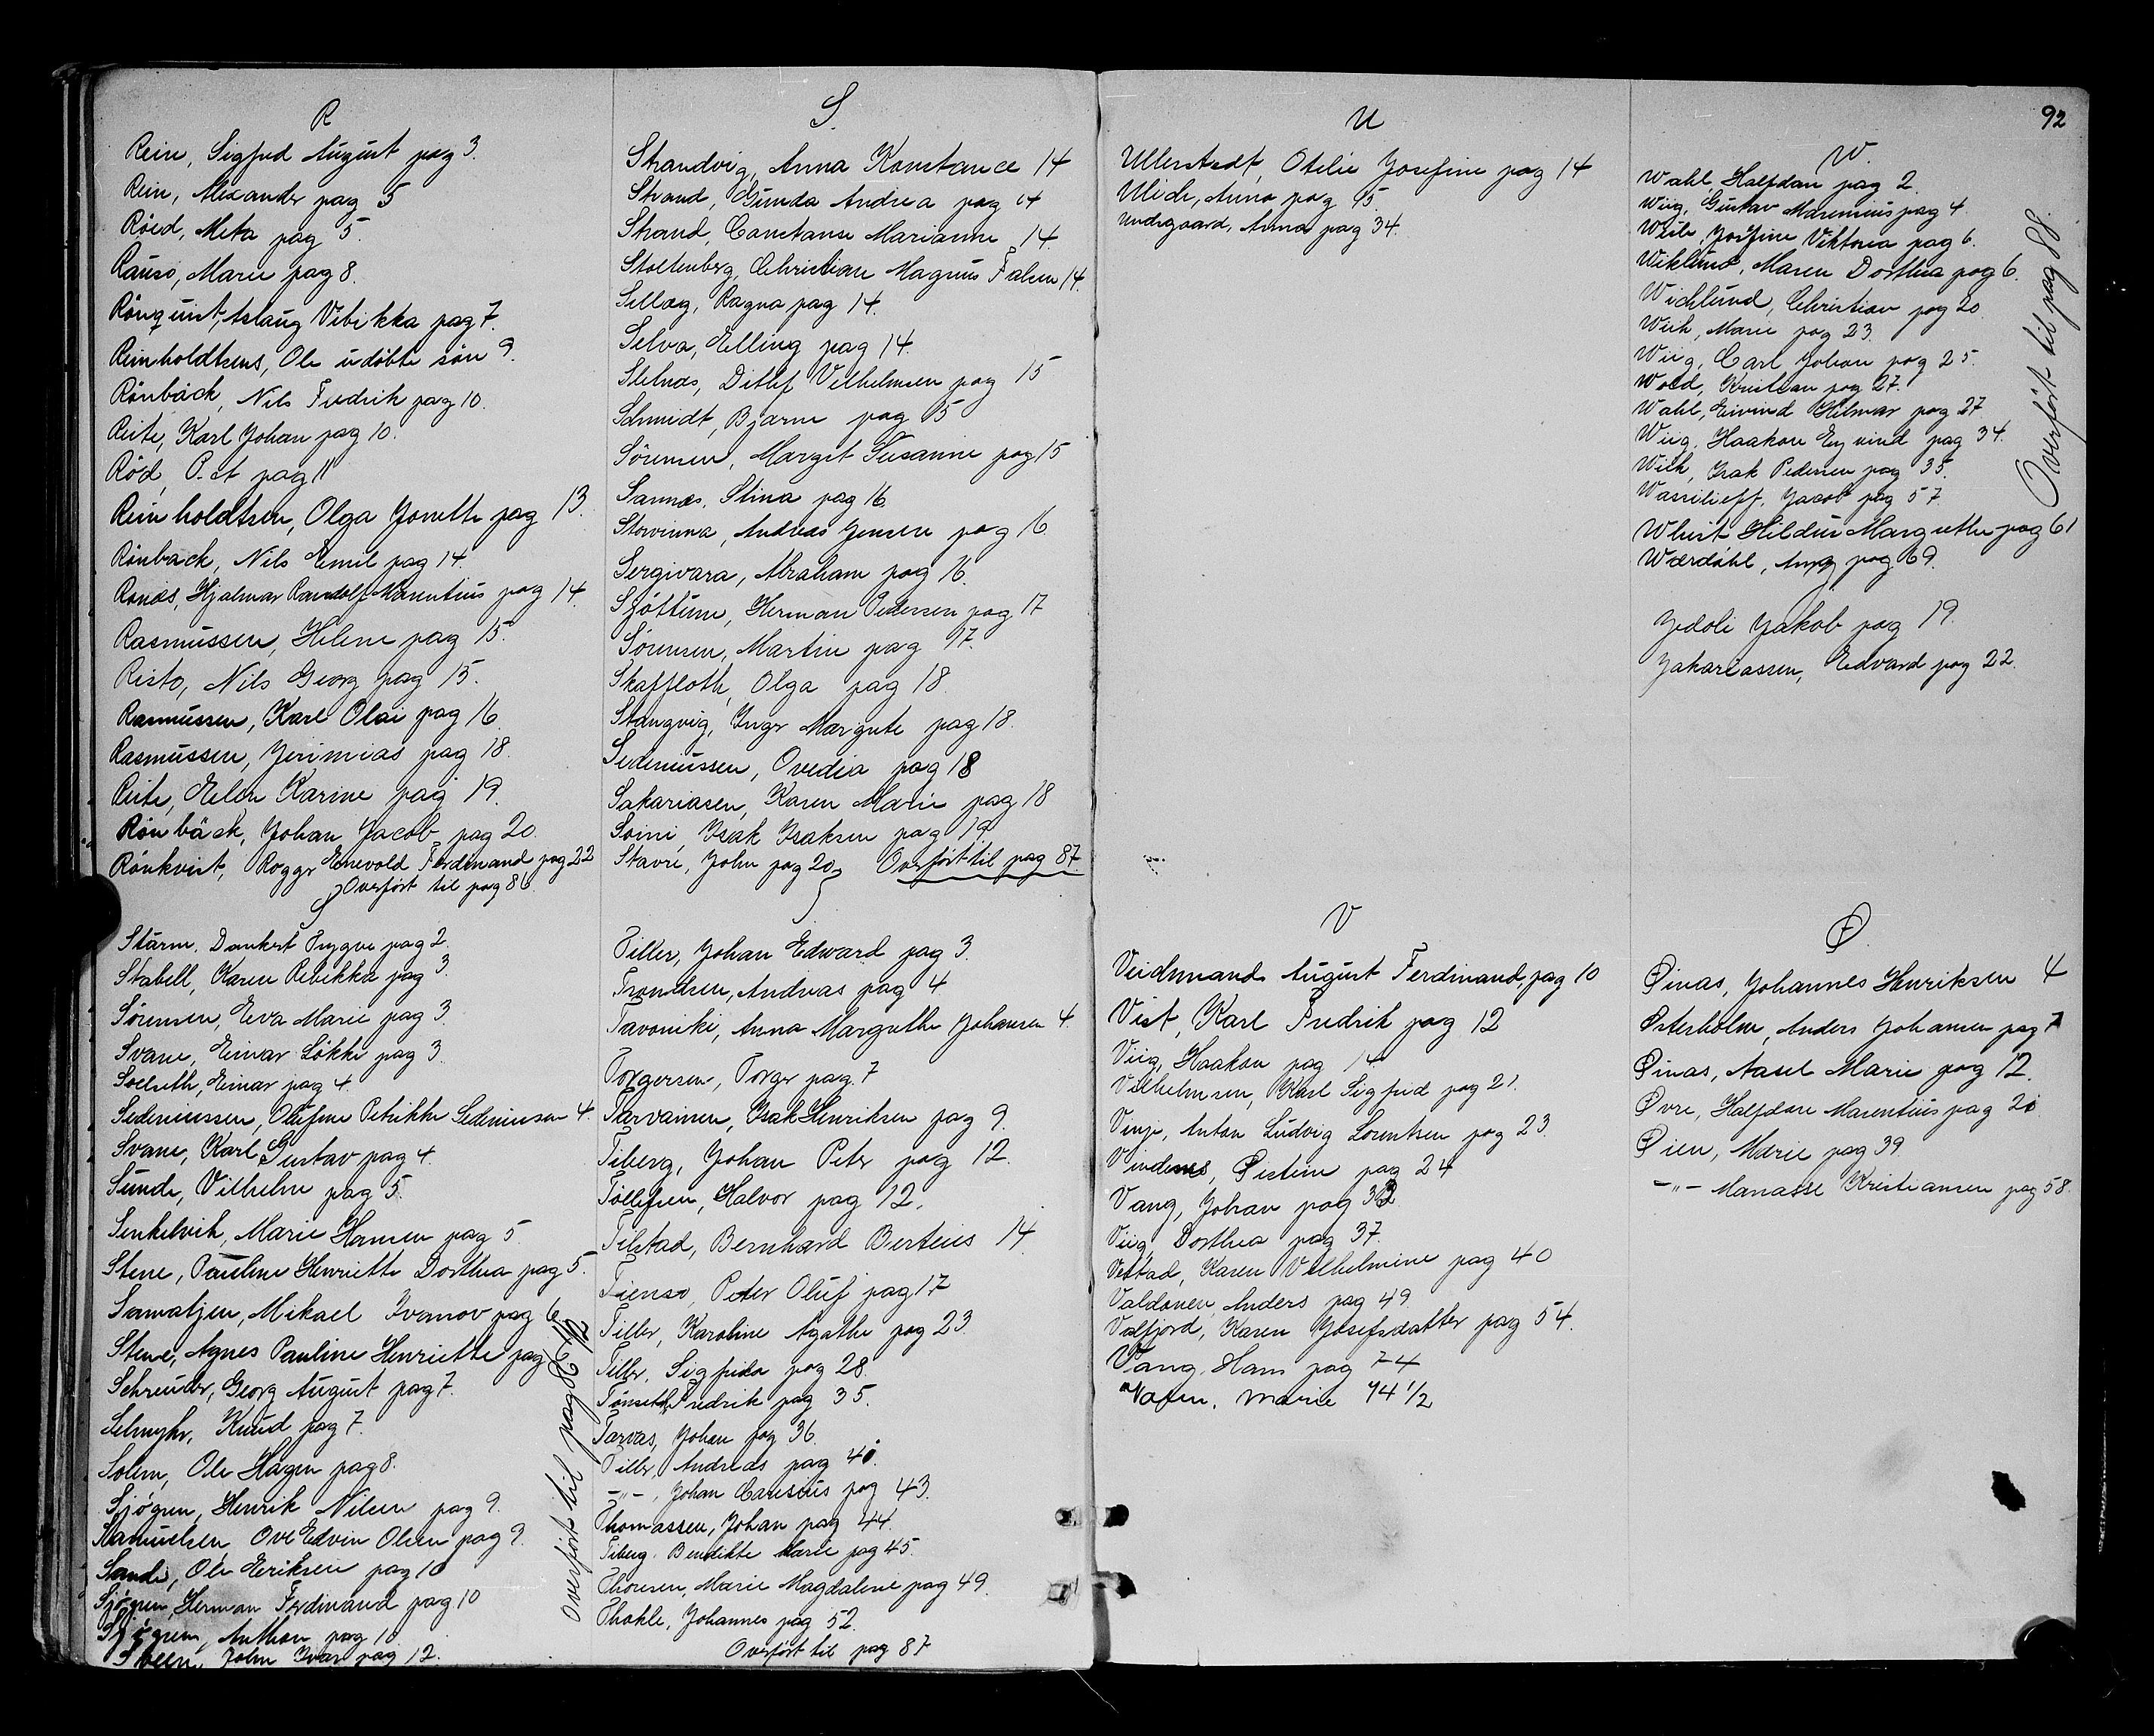 R
Rein, Sigfred August pag 3.
Rein, Alexander pag 5
Röed, Meta pag 5.
Rauso, Marie pag 8.
Rönquist, Aslaug Vebikka pag 7.
Reinholdtsens, Ole udöbte sön 9.
Rönbäck, Nils Fredrik pag 10.
Reite, Karl Johan pag 10.
Röd, pag 11
Reinholdtsen, Olga Jonette pag 13.
Rönback, Nils Emil pag 14.
Rönäs, Hjalmar Randolf Marentius pag 14.
Rasmussen, Helene pag 15.
Risto, Nils Georg pag 15.
Rasmussen, Karl Olai pag 16
Rasmussen, Jerimias pag 18.
Reite, Ellen Karine pag 19.
Rönbäck, Johan Jacob pag 20.
Rönkvist, Roggr Enevold Ferdinand pag 22
Overfört til pag 86.
S
Sturm, Dankert Trygve pag 2.
Stabell, Karen Rebekka pag 3.
Sörensen, Eva Marie pag 3.
Svane, Einar Lökke pag 3.
Soelseth, Einar pag 4.
Sedeniussen, Olufine Petrikke Sedeniusen 4.
Svane, Karl Gustav pag 4.
Sunde, Vilhelm pag 5.
Senkelvik, Marie Hansen pag 5.
Stene, Pauline Henriette Dorthea pag 5.
Samatjen, Mikael Ivanov pag 6
Stene, Agnes Pauline Henriette pag
Schreuder, Georg August pag 7.
Selmyhr, Knud pag 7.
Solem, Ole Hagen pag 8.
Sjögren, Henrik Nilsen pag 9.
Samuelsen, Ove Edvin Olsen pag 9.
Sande, Ole Eriksen pag 10
Sjögren, Herman Ferdinand pag 10
Sjögren, Anthon pag 10
Sveen, John Ivar pag 12.
Overfört til pag 86 1/2
S.
Strandvig, Anna Konstance 14
Strand, Gunda Andrea pag 14
Strand, Constanse Marianne 14.
Stoltenberg, Christian Magnus Falsen 14.
Selläg, Ragna pag 14.
Selva, Elling pag 14.
Stelnäs, Ditlef Vilhelmsen pag 15
Schmidt, Bjarne pag 15
Sörensen, Margit Susanne pag 15
Sannes, Stina pag 16
Storvinna, Andreas Jensen pag 16.
Sergivara, Abraham pag 16.
Sjöttum, Herman Pedersen pag 17
Sörensen, Martin pag 17.
Skaffloth, Olga pag 18.
Stangvig, Inger Margrete pag 18.
Sedeniussen, Ovedia pag 18
Sakariasen, Karen Marie pag 18
Soini, Isak Isaksen pag 19
Stavri, John pag 20, Overfört til pag 87.
Tiller, Johan Edward pag 3.
Trondsen, Andreas pag 4.
Tavoniki, Anna Margrethe Johansen 4.
Torgersen, Torger pag. 7
Tarvainen, Isak Henriksen pag 9.
Tiberg, Johan Peter pag 12.
Tollefsen, Halvor pag 12.
Tilstad, Bernhard Berteus 14
Tienso, Peder Oluf pag 17
Tiller, Karoline Agathe pag 23.
Tiller, Sigfrida pag 28.
Tönseth, Fredrik pag 35.
Tarvas, Johan pag 36.
Tiller, Andreas pag 40.
-"-, Johan Carisius pag 43.
Thomassen, Johan pag 44.
Tiberg, Bendikte Marie pag 45.
Thoresen, Marie Magdalene pag 49.
Thokle, Johannes pag 52.
Overfört til pag 87
U
Ullerstedt, Otelie Josefine pag 14
Ulide, Anna pag 15.
Undegaard, Anna pag 34.
V
Viidnmand August Ferdinand, pag 10
Vist, Karl Fredrik pag 12
Viig, Haakon pag 14.
Vilhelmsen, Karl Sigfrid pag 21.
Vinje, Anton Ludvig Lorentsen pag 23.
Vindenes, Øistein pag 24
Vang, Johan pag 33
Viig, Dorthea pag 37.
Vestad, Karen Vilhelmine pag 40
Valdonen, Anders pag 49.
Valfjord, Karen Josefsdatter pag 54.
Vang, Hans pag 74
, Marie 74 1/2
92
W.
Wahl, Halfdan pag 2.
Wiig, Gustav Marenius pag 4.
Josefine Viktoria pag 6.
Wiklund, Maren Dorthea pag 6.
Wicklund, Christian pag 20
Wiik, Marie pag 23.
Wiig, Carl Johan pag 25.
Wold, Kristian pag 27.
Wahl, Eivind Hilmar pag 27
Wiig, Haakon Eyvind pag 34.
Wiik, Isak Pedersen pag 35.
Wassilieff, Jacob pag 57.
Whist Hildur Margrethe pag 61
Wærdahl, pag 69.
Jedoli Jakob pag 19.
Jakariassen, Edvard pag 22.
Overfört til pag 88.
Ø.
Øinas, Johannes Henriksen 4
Østerholm, Anders Johansen pag 7
Øinas, Aasel Marie pag 12.
Øvre, Halfdan Marentius pag 20
Øien, Marie pag 39.
-"- Manasse Kristiansen pag 58.